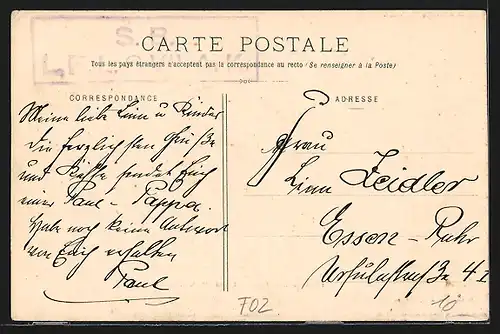 S. B.
CARTE POSTALE
Tous les pays étrangers n'acceptent pas la correspondance au recto (Se renseigner à la Poste)
CORRESPONDANCE
Meine liebe Linn u Kinder
die herzlichsten Grüße
und Küsse sendet Euch
euer Paul - Pappa.
Habe noch keine Antwort
von Euch erhalten
Paul
ADRESSE
Frau
Linn Zeidler
Essen - Ruhr
Ursulastraße 4 I
F02
10